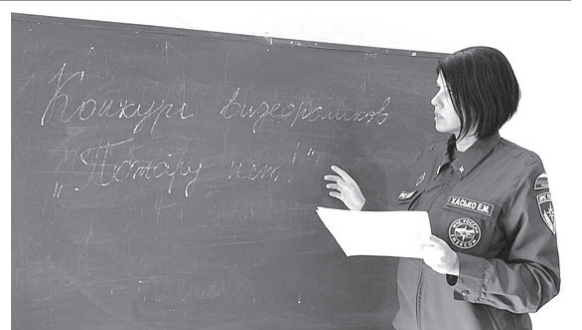 Конкурс видеороликов
„Пожару нет!"
ХАСЬКО Е.М.
МЧС РОССИИ